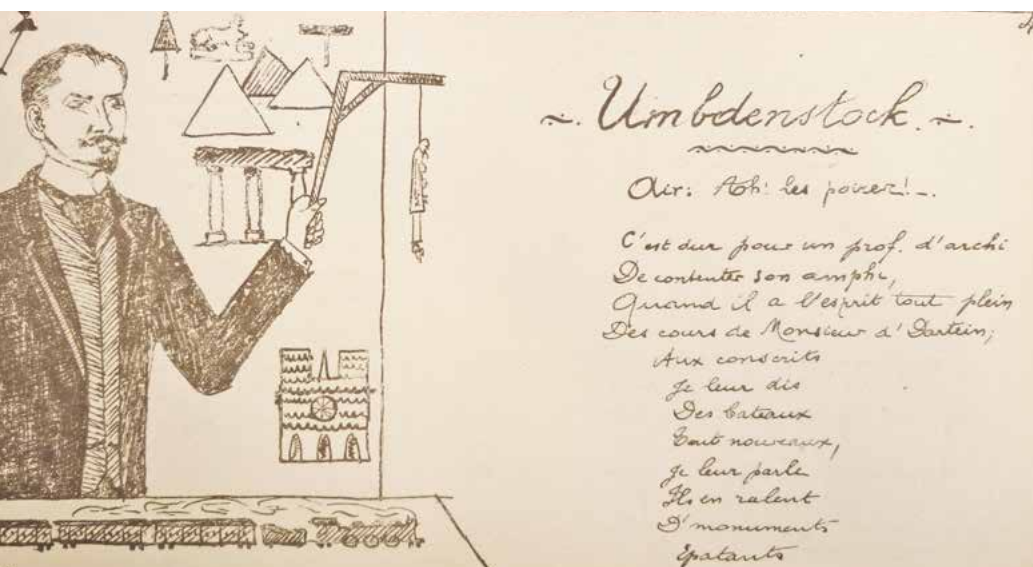 ~. Umbdenstock. ~.
Air: Ah! les poires! -.
C'est dur pour un prof. d'archi
De contenter son amphi,
Quand il a l'esprit tout plein
Des cours de Monsieur d'Dartein;
Aux conscrits
Je leur dis
Des bateaux
Tout nouveaux,
Je leur parle
Ils en ralent
D'monuments
Epatants